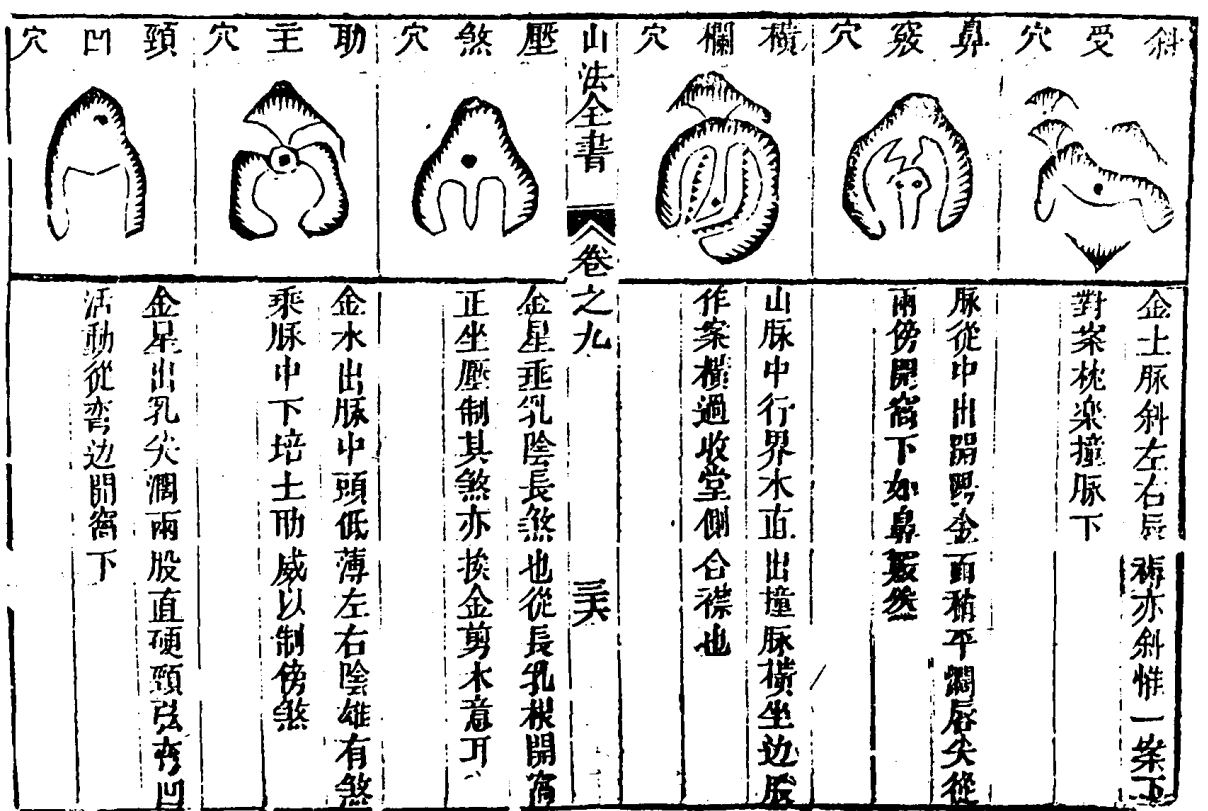 斜受穴
金土脉斜左右唇褥亦斜惟一案正
對案枕樂撞脉下
鼻竅穴
脉從中出開陽金面稍平濶唇尖從
兩傍開窩下如鼻竅然
橫欄穴
山脉中行界水直出撞脉橫坐边股
作案橫過收堂側合襟也
山法全書
卷之九
三六
壓煞穴
金星垂乳陰長煞也從長乳根開窩
正坐壓制其煞亦挨金剪木意耳
助主穴
金水出脉中頭低薄左右陰雄有煞
乘脉中下培土助威以制傍煞
頸凹穴
金星出乳尖濶兩股直硬頸弦弯凹
活動從弯边開窩下